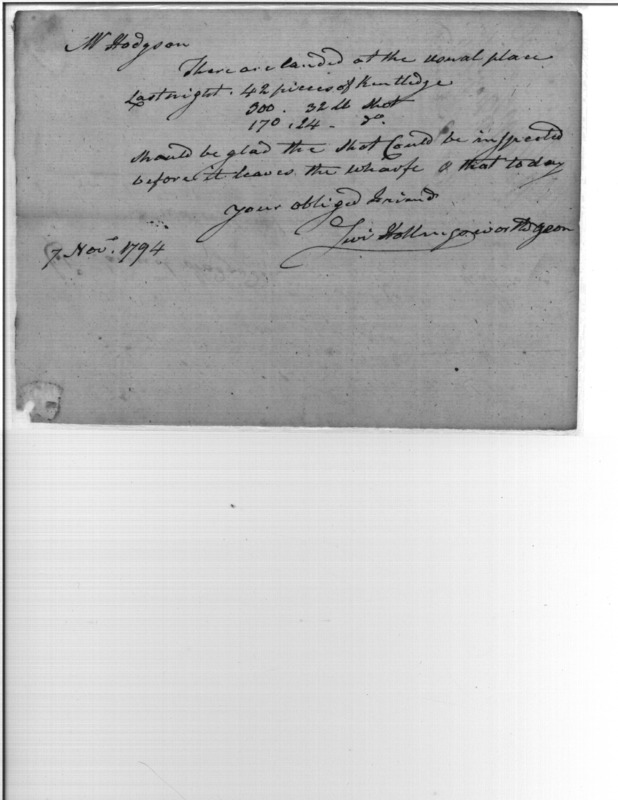 Mr Hodgson
There are landed at the usual place
Last night. 42 pieces of Kentledge
300. 32 lb Shot
170. 24 - Do.
should be glad the Shot Could be inspected
before it leaves the wharfe & that to day
your obliged Friend
Levi Hollingsworth & Son
7. Nov. 1794